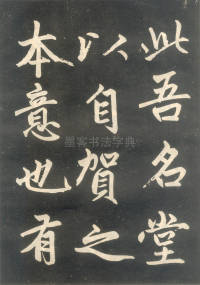 此吾名堂
以自賀之
本意也有
墨客书法字典